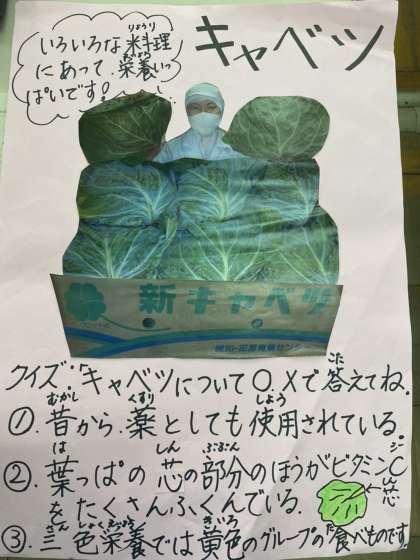 キャベツ
いろいろな料理
りょうり
にあって栄養いっ
えいよう
ぱいです!
新キャベツ
クイズ:「キャベツについて○、×で答えてね。
こた
①.昔から薬としても使用されている。
むかし くすり しよう
②.葉っぱの芯の部分のほうがビタミンC
は しん ぶぶん シー
をたくさんふくんでいる。
しん芯
③.三色栄養では黄色のグループの食べものです
さん しょくえいよう きいろ た